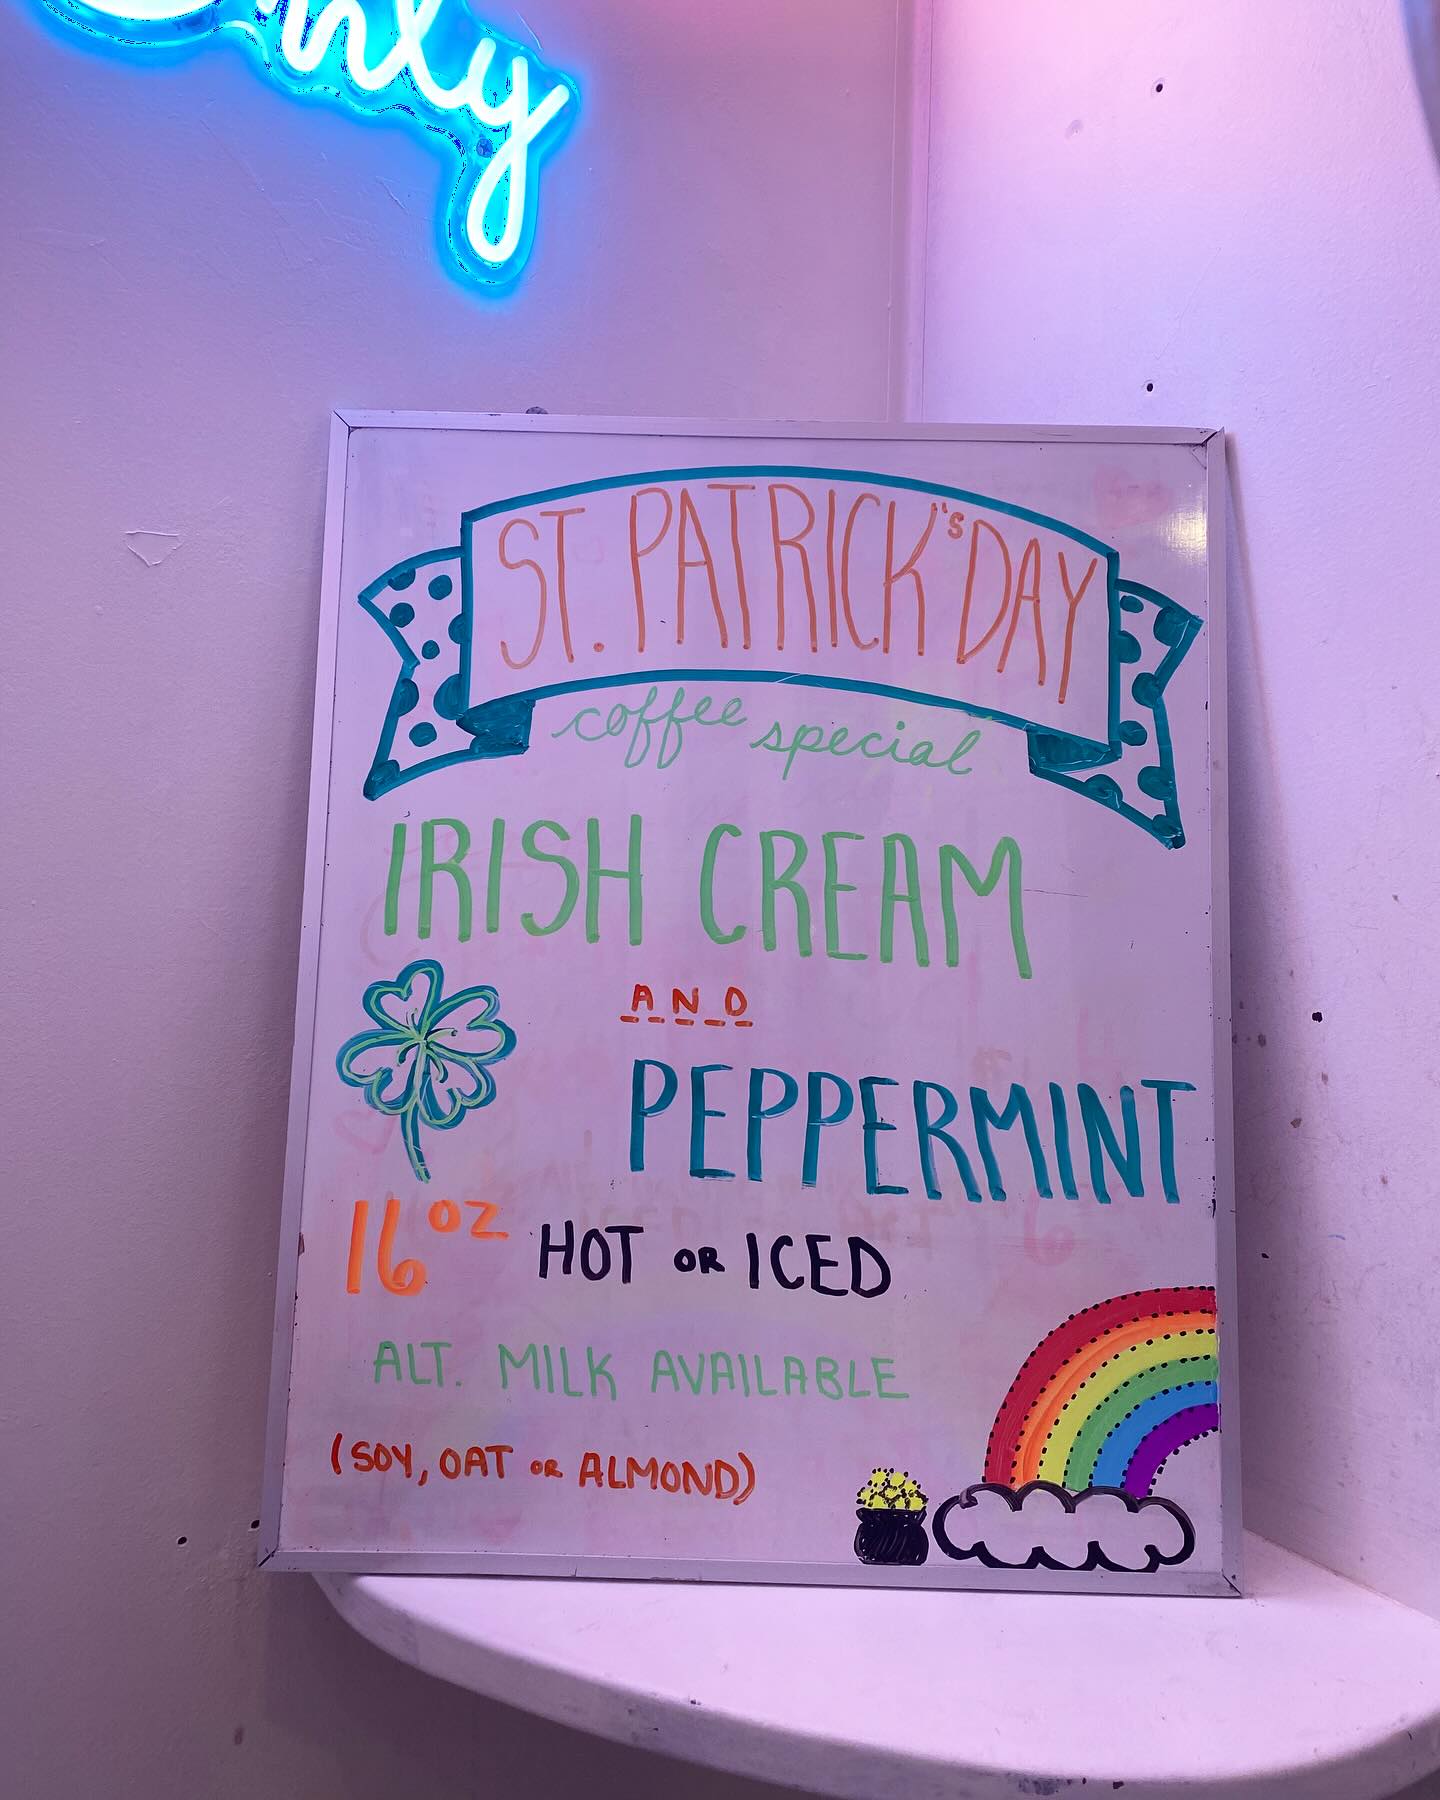 ST. PATRICK"s DAY
coffee special
IRISH CREAM
AND
PEPPERMINT
16 OZ HOT OR ICED
ALT. MILK AVAILABLE
(SOY, OAT OR ALMOND)